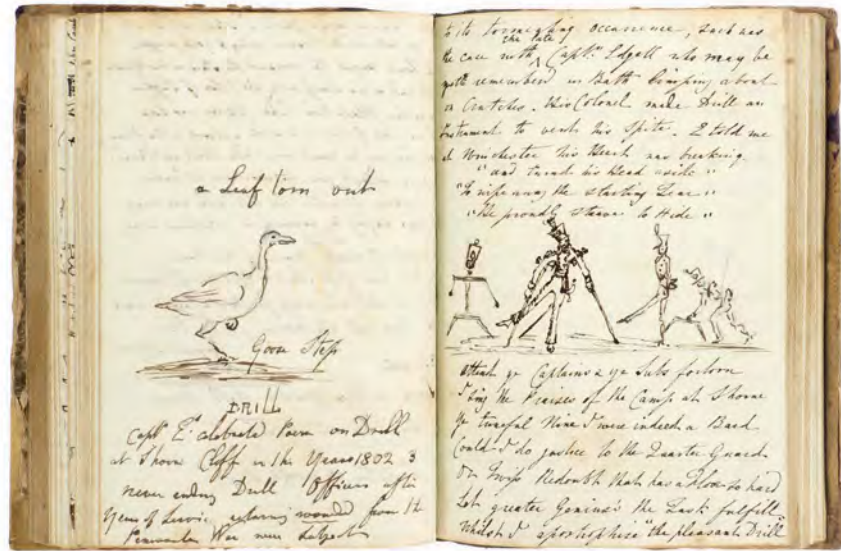 a Leaf torn out
Goose Step
DRILL
Capt E. celebrated Poem on Drill
at Shorn Cliff in the Years 1802 3
never ending Drill Officers after
Years of Service returning wounded from the
Peninsular War were subject
to its tormenting occurrence, such was
the case with the late Captn. Edgell who may be
remember'd in Bath limping about
on Crutches. His Colonel made Drill an
Instrument to vent his Spite. E told me
at Winchester his Heart was breaking.
"and turn'd his Head aside "
"To wipe away the starting Tear "
"He proudly strove to Hide "
Attend ye Captains & ye Subs forlorn
I sing the Praises of the Camp at Shorne
Ye tuneful Nine I were indeed a Bard
Could I do justice to the Quarter Guard
Or Redoubt that has a so hard
Let greater Genius's the Task fulfill
Whilst I apostrophise "the pleasant Drill"